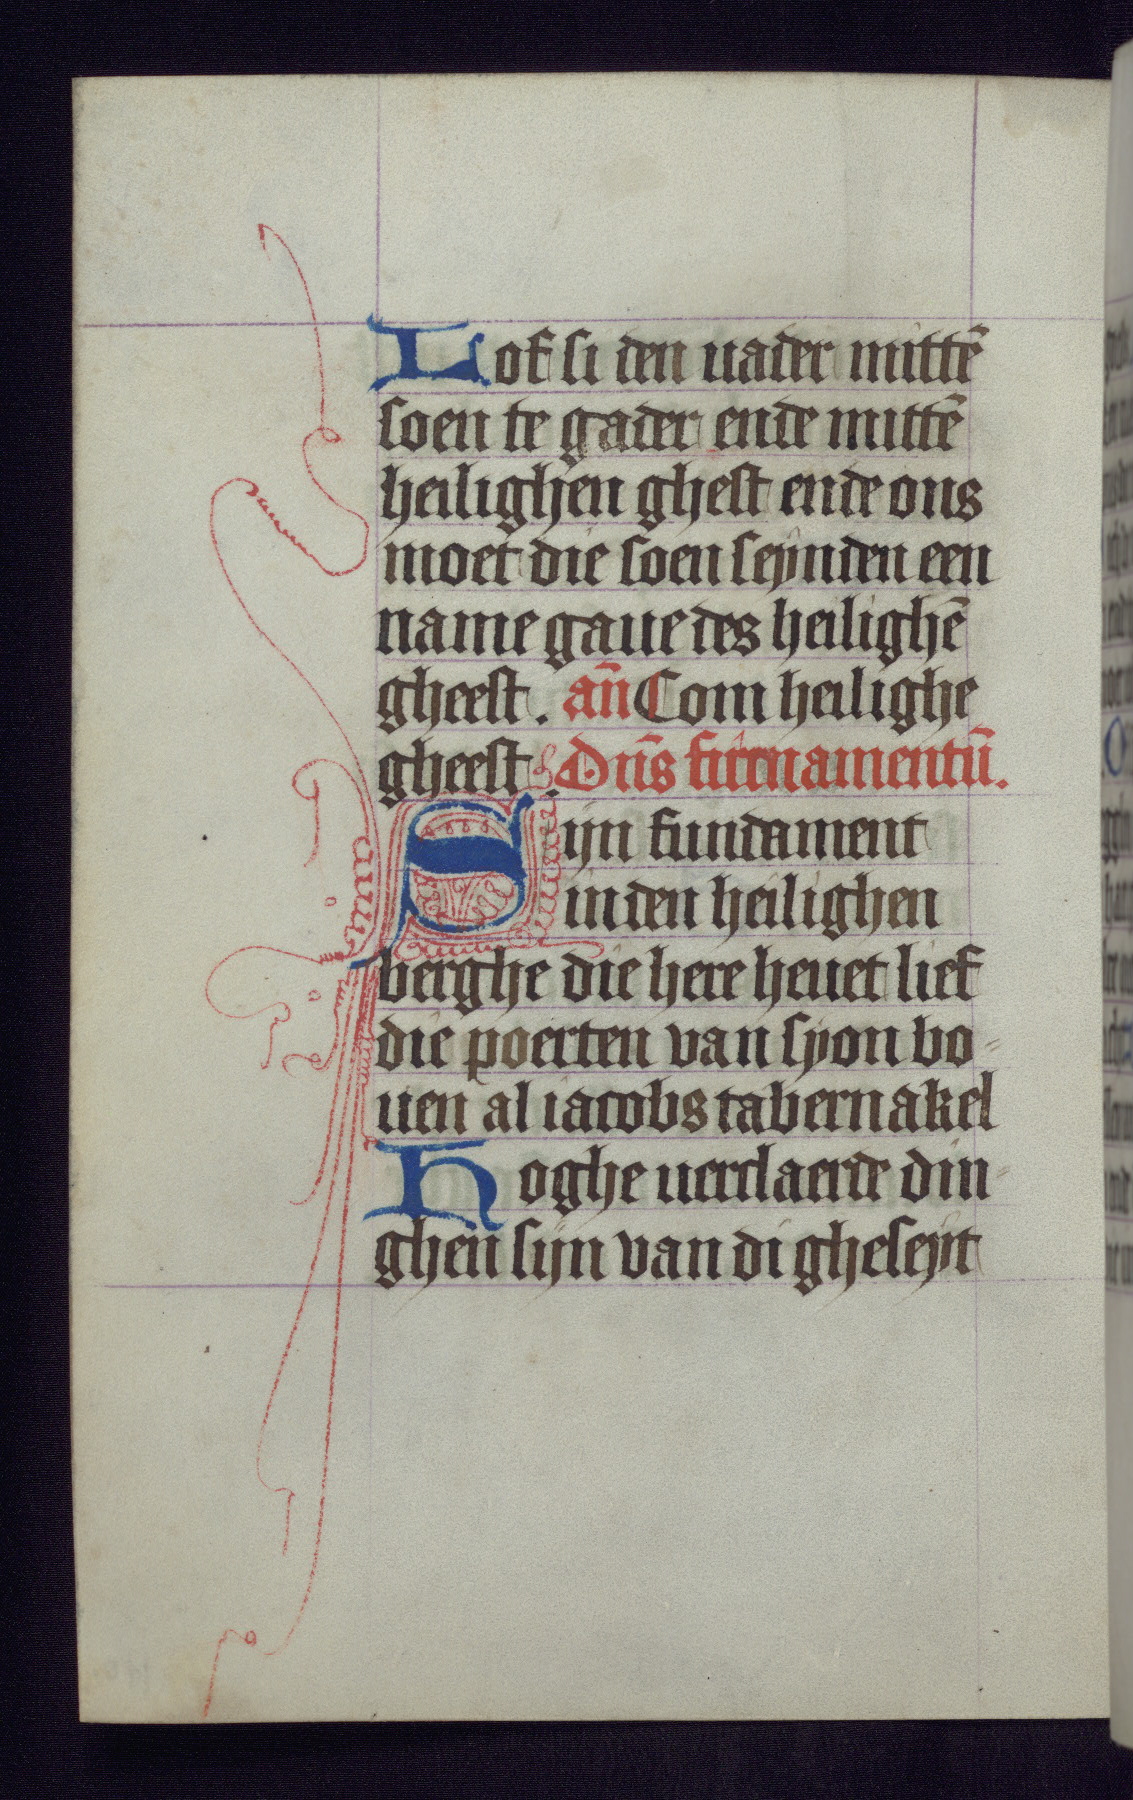 Lof si den uader mittē
soen te gader ende mittē
heilighen ghest ende ons
moet die soen seynden een
name gaue des heilighē
gheest. an̄ Com heilighe
gheest. Dn̄s firmamentū.
Sijn fundament
in den heilighen
berghe die here heuet lief
die poerten van syon bo-
uen al iacobs tabernakel
Hoghe uerclaerde din-
ghen sijn van di gheseyt